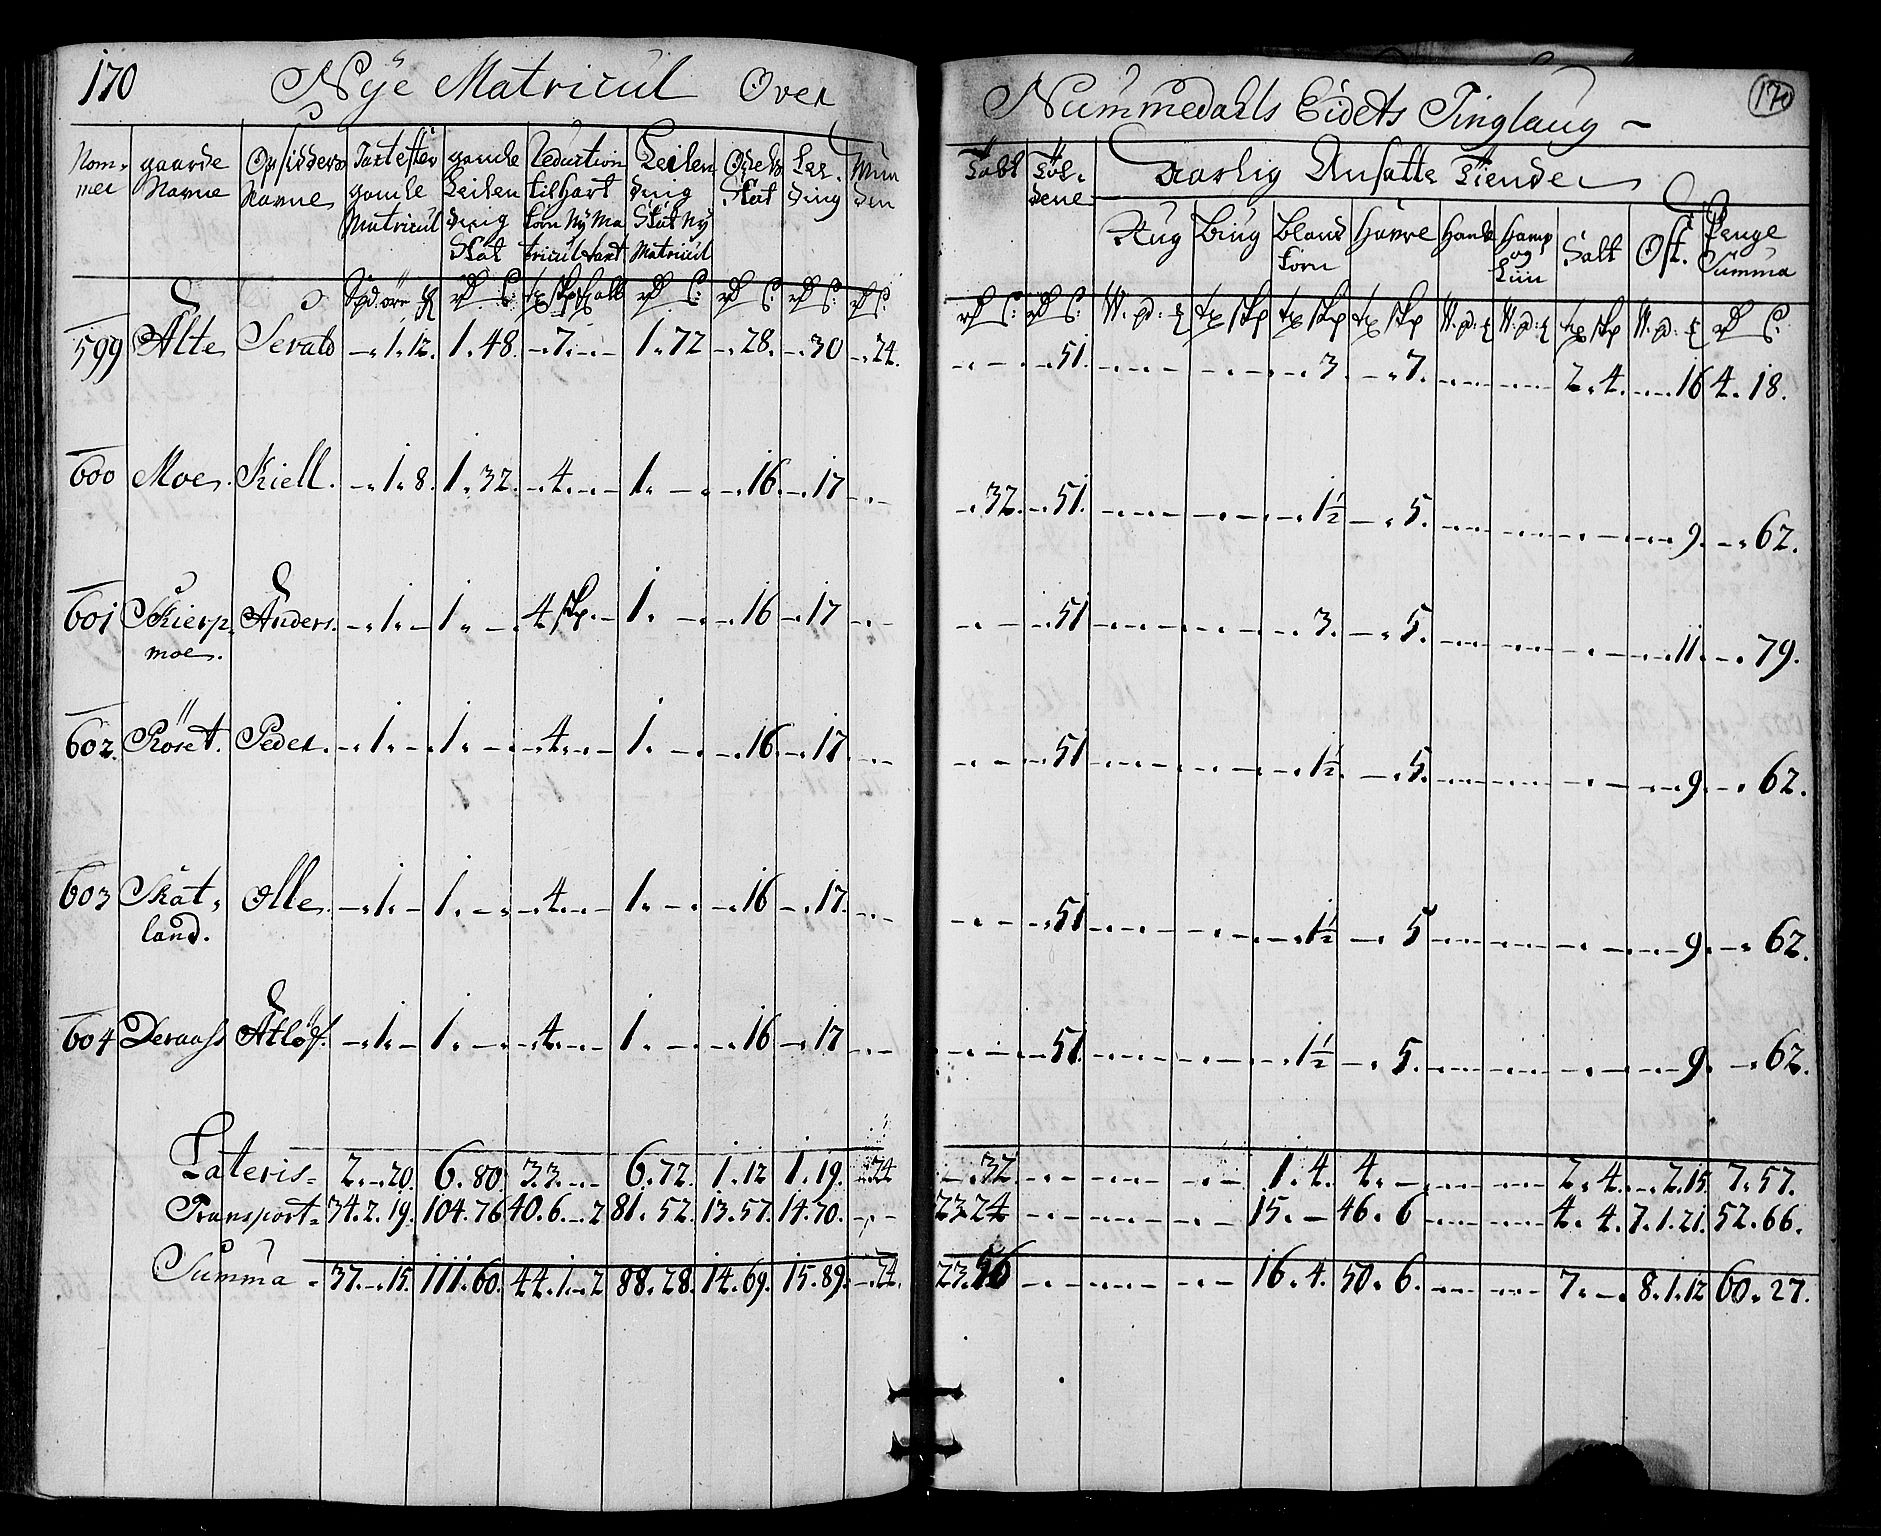 170 Nÿe Matricul Over
Nummedahls Eidets Tinglaug
170
Nom-
mer
gaarde
Navne
Opsidders
Navne
Taxt efter
gamle
Matricul
gamle
Leilen
ding
Skat
Reduction
til hart
korn Nÿ Ma
tricul taxt
Leilen
ding
Skat Nÿ
Matricul
Odels
Skat
Lei-
ding
Told
Aarlig Ansatte Tiende
Rug
Biug
Bland
korn
Havre
Hamp
og
Liin
Salt
Ost.
Penge
Summa
599 Alte 1. 12. 1. 48. 7. 1. 72 28. 30 24. 51 3 7. 2. 4. 16 4. 18.
600 Moe Kiell. 1. 8. 1. 32. 4. 1. 16. 17 32. 51. 1½ 5. 9. 62.
601 Skierp-
moe. Anders. 1. 1. 4 skp. 1. 16 17 51 3. 5. 11. 79.
602. Röset. Peder. 1. 1. 4. 1. 16. 17 51 1½. 5. 9. 62.
603 Skat-
land. Olle 1. 1. 4. 1. 16 17. 51 1½ 5 9. 62.
604 Deraass 1. 1. 4. 1. 16 17 51 1½ 5. 9. 62.
Lateris 2. 20. 6. 80. 33. 6. 72. 1. 12 1. 19. 24 32. 1. 4. 4. 2. 4. 2. 15 7. 57.
Transport 34. 2. 19. 104. 76 40. 6. 2 81. 52. 13. 57. 14. 70. 23. 24 15. 46. 6 4. 4. 7. 1. 21. 52. 66.
Summa 37. 15. 111. 60. 44. 1. 2 88. 28. 14. 69. 15. 89. 24. 23. 56 16. 4. 50. 6. 7. 8. 1. 12 60. 27.